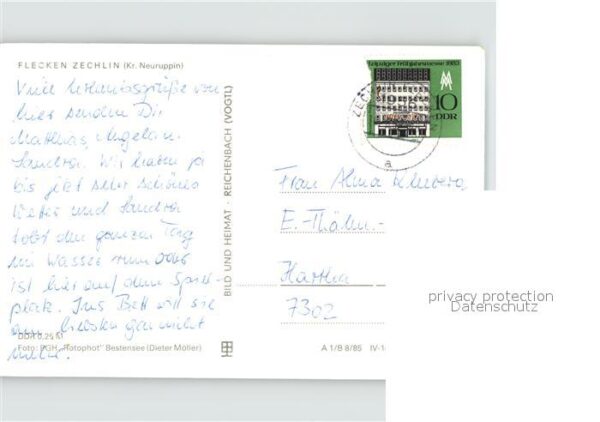 FLECKEN ZECHLIN (Kr. Neuruppin)
Viele Urlaubsgrüße von
hier senden Dir
Matthias, Angela u.
Sandra. Wir haben ja
bis jetzt sehr schönes
Wetter und Sandra
tobt den ganzen Tag
im Wasser rum oder
ist hier auf dem Spiel-
platz. Ins Bett will sie
am liebsten gar nicht
DDR 0,25 M
Foto: PGH "Rotophot" Bestensee (Dieter Möller)
BILD UND HEIMAT · REICHENBACH (VOGTL)
A 1/B 8/85 IV-1
Leipziger Frühjahrsmesse 1983
MM
10
DDR
ZECH
a
Frau Alma
E.-Thälm.-
Hartha
7302
privacy protection
Datenschutz